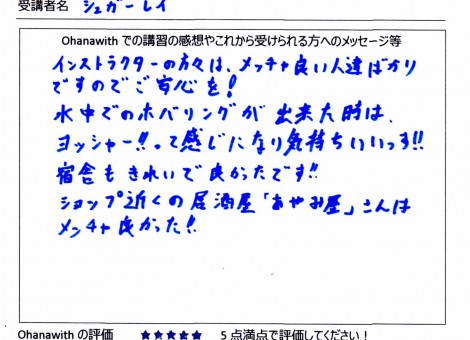 受講者名 シュガーレイ
Ohanawith での講習の感想やこれから受けられる方へのメッセージ等
インストラクターの方々は、メッチャ良い人達ばかり
ですのでご安心を!
水中でのホバリングが出来た時は、
ヨッシャー!!って感じになり気持ちいいっす!!
宿舎もきれいで良かったです!!
ショップ近くの居酒屋「あやみ屋」さんは
メッチャ良かった!!
Ohanawith の評価 ★★★★★ 5 点満点で評価してください！